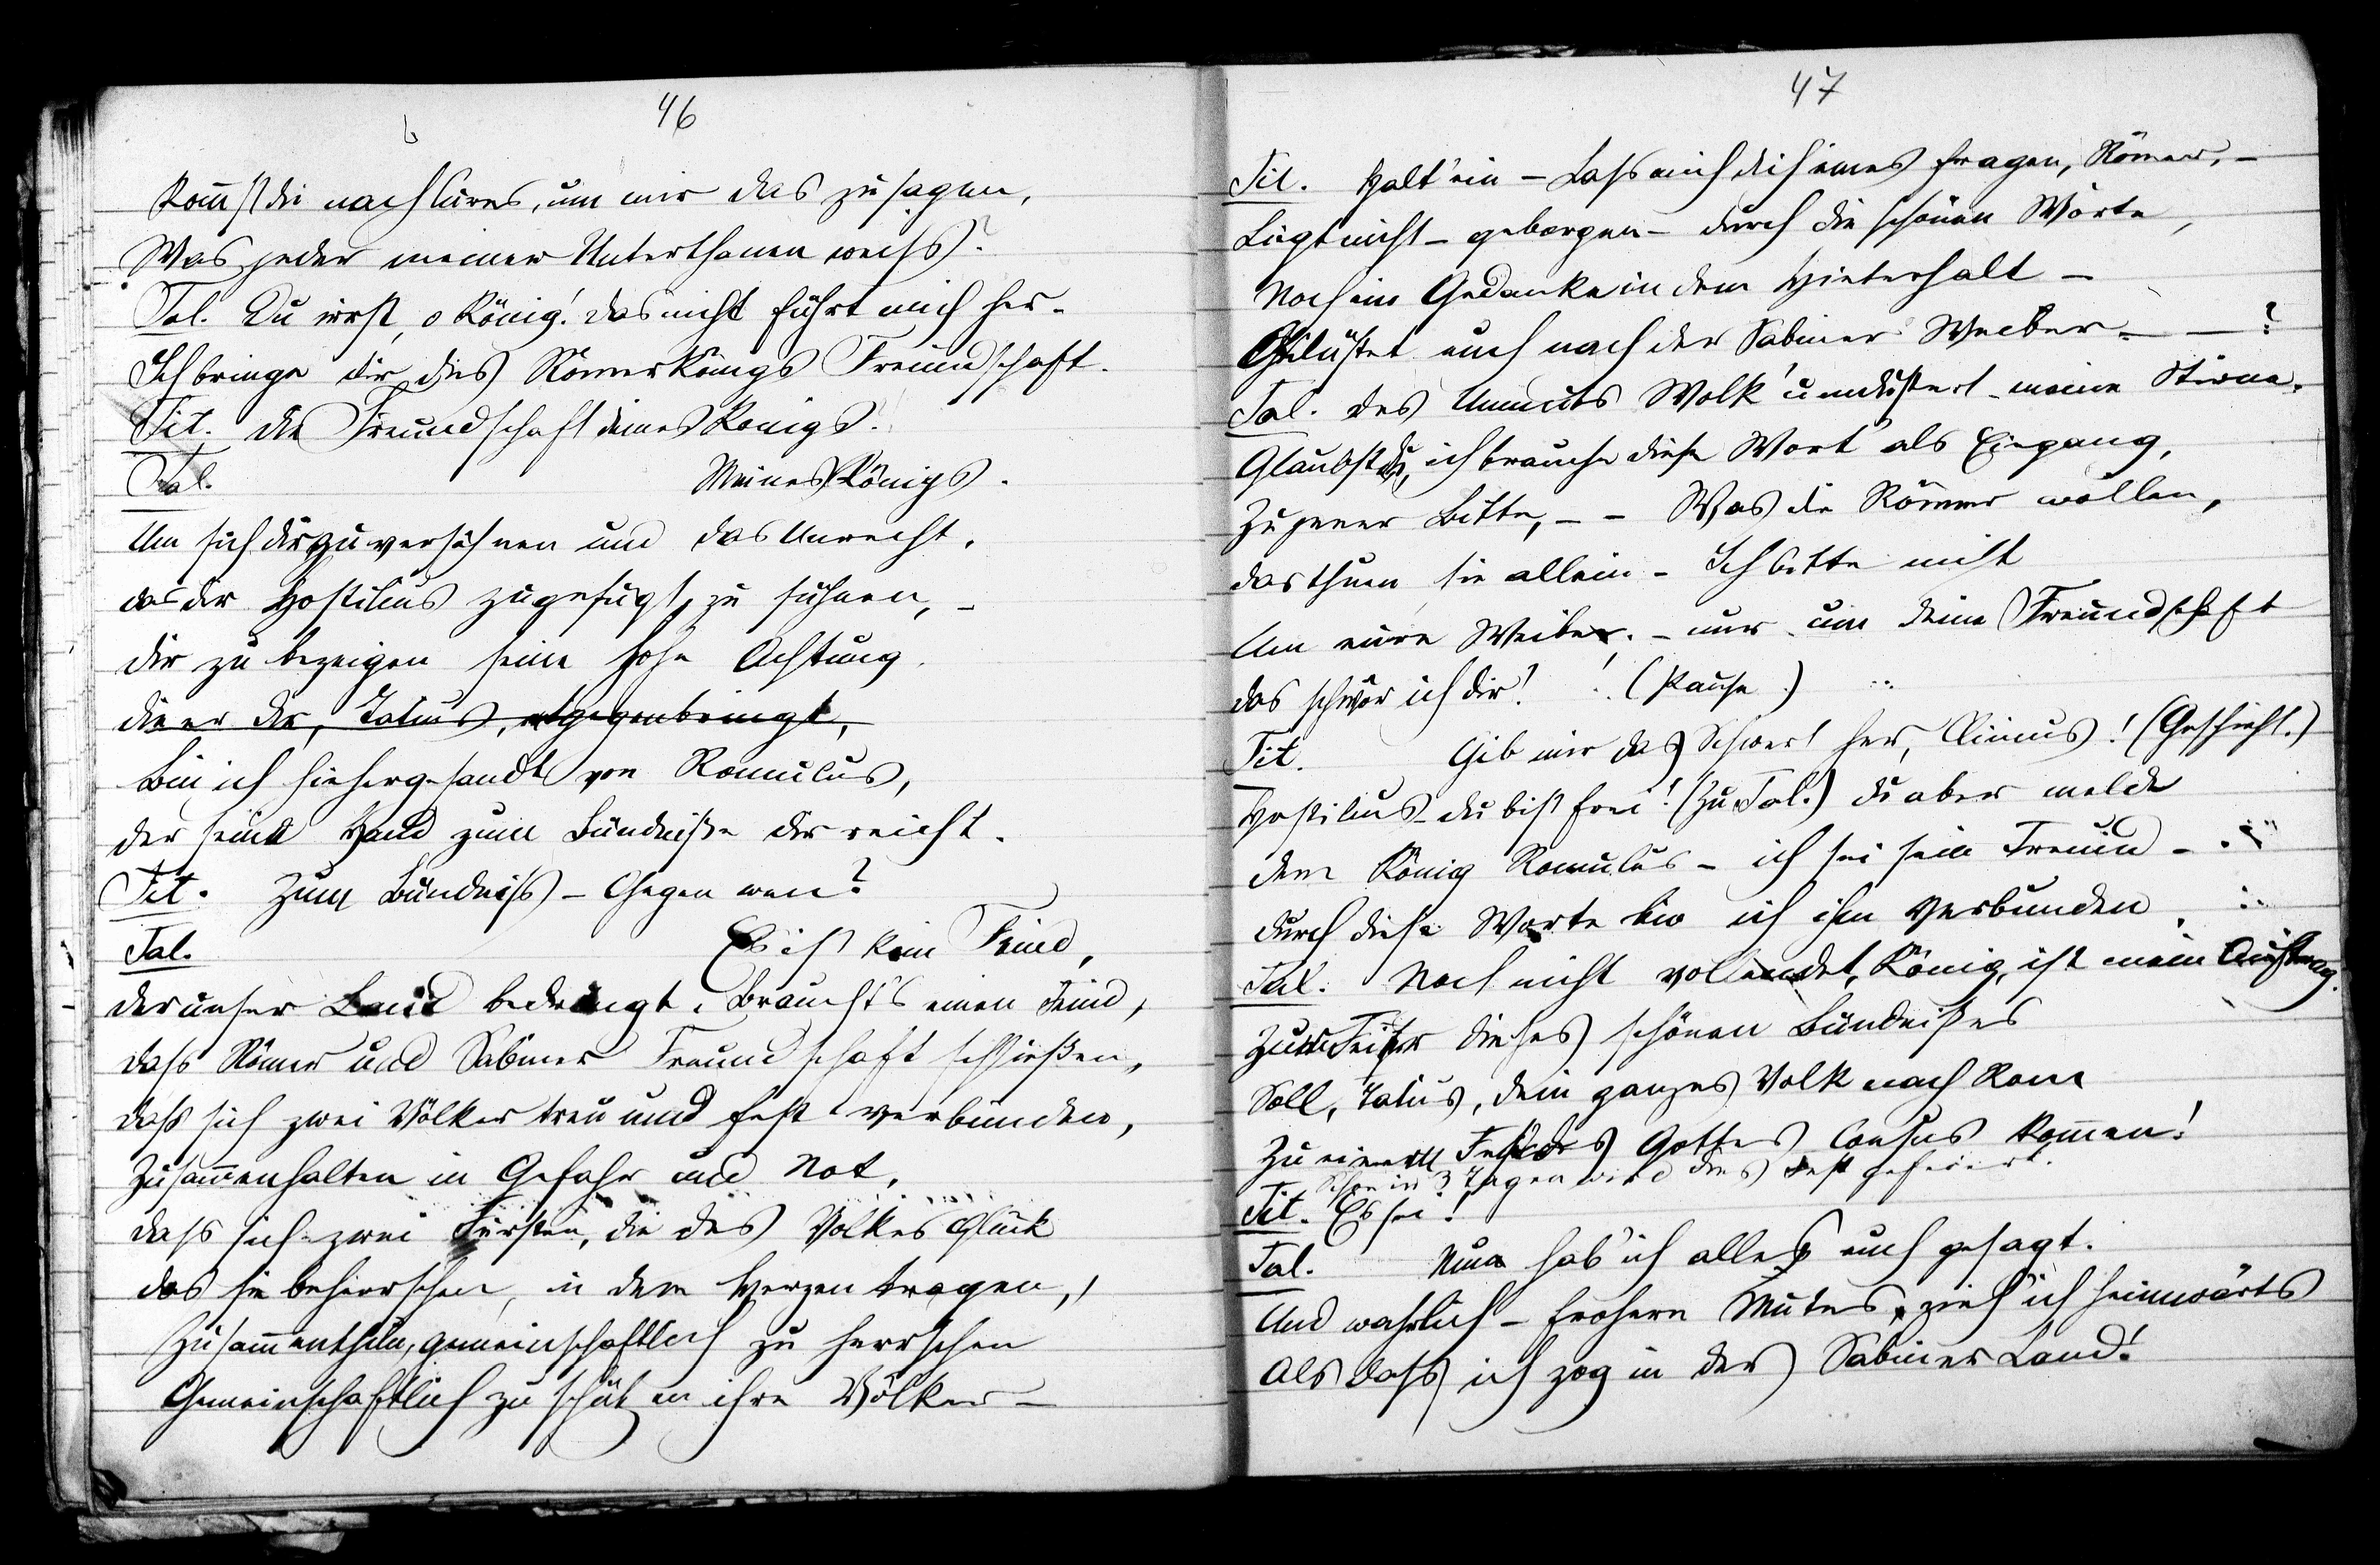 46
Kom̄st du nach Cures, um mir das zu sagen,
Was jeder meiner Unterthanen weiss?
Tal. Du irrst, o König! das nicht führt mich her.
Ich bringe dir des Römerkönigs Freundschaft.
Tit. die Freundschaft deines Königs.
Tal. Meines Königs.
Um sich dir zu versöhnen und das Unrecht,
das dir Hostilius zugefügt, zu sühnen, –
dir zu bezeigen seine hohe Achtung.
die er dir, Tatius, entgegenbringt,
Bin ich hiehergesandt von Romulus,
der seine Hand zum Bündnisse dir reicht.
Tit. Zum Bündniss – Gegen wen?
Tal. Es ist kein Feind,
der unser Land bedrängt. Braucht's einen Feind,
dass Römer und Sabiner Freundschaft schließen,
dass sich zwei Völker treu und fest verbünden,
Zusam̄enhalten in Gefahr und Not,
dass sich zwei Fürsten, die des Volkes Glück
das sie beherrschen, in dem Herzen tragen,
Zusam̄enthun, gemeinschaftlich zu herrschen
Gemeinschaftlich zu schützen ihre Völker –
47
Tit. Halt' ein – Lass mich dich eines fragen, Römer, –
Liegt nicht – geborgen – durch die schönen Worte,
Noch ein Gedanke in dem Hinterhalt –
Gelüstet euch nach der Sabiner Weiber – – ?
Tal. des Unmuts Wolk' umdüstert meine Stirne.
Glaubst du, ich brauche diese Wort' als Eingang,
Zu jener Bitte, – – Was die Römer wollen,
das thuen sie allein – Ich bitte nicht
Um eure Weiber, – nur um deine Freundschaft
das schwör ich dir! (Pause.)
Tit. Gib mir das Schwert her, ! (Geschieht.)
Hostilius du bist frei! (Zu Tal.) du aber melde
dem König Romulus – ich sei sein Freund –
durch diese Worte bin ich ihm verbunden.
Tal. Noch nicht vollendet, König, ist mein Auftrag.
Zur Feier dieses schönen Bündnißes
Soll, Tatius, dein ganzes Volk nach Rom
Zu einem Fest des Gottes Consus kom̄en!
Schon in 3 Tagen wird dies Fest gefeiert.
Tit. Es sei!
Tal. Nun hab' ich alles euch gesagt.
Und wahrlich – frohern Mutes zieh' ich heimwärts
Als dass ich zog in der Sabiner Land!